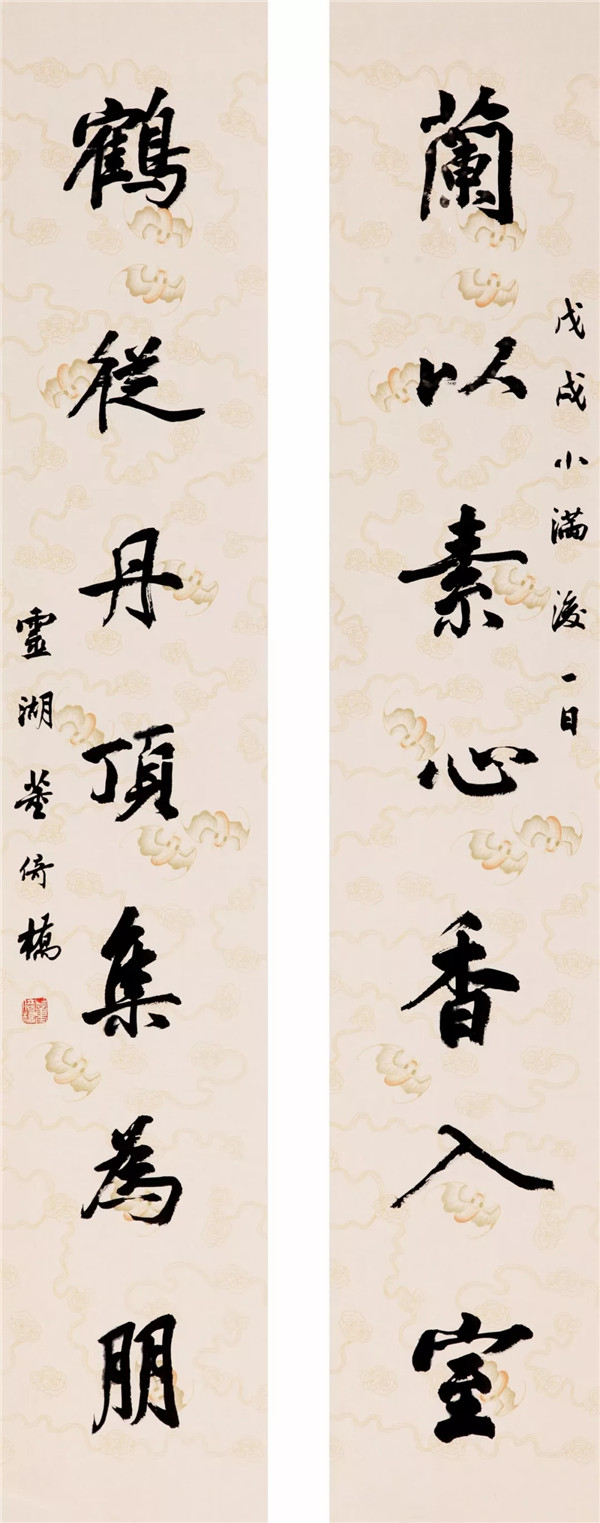 蘭以素心香入室
戊戌小滿後一日
鶴從丹頂集為朋
靈湖董倚橋